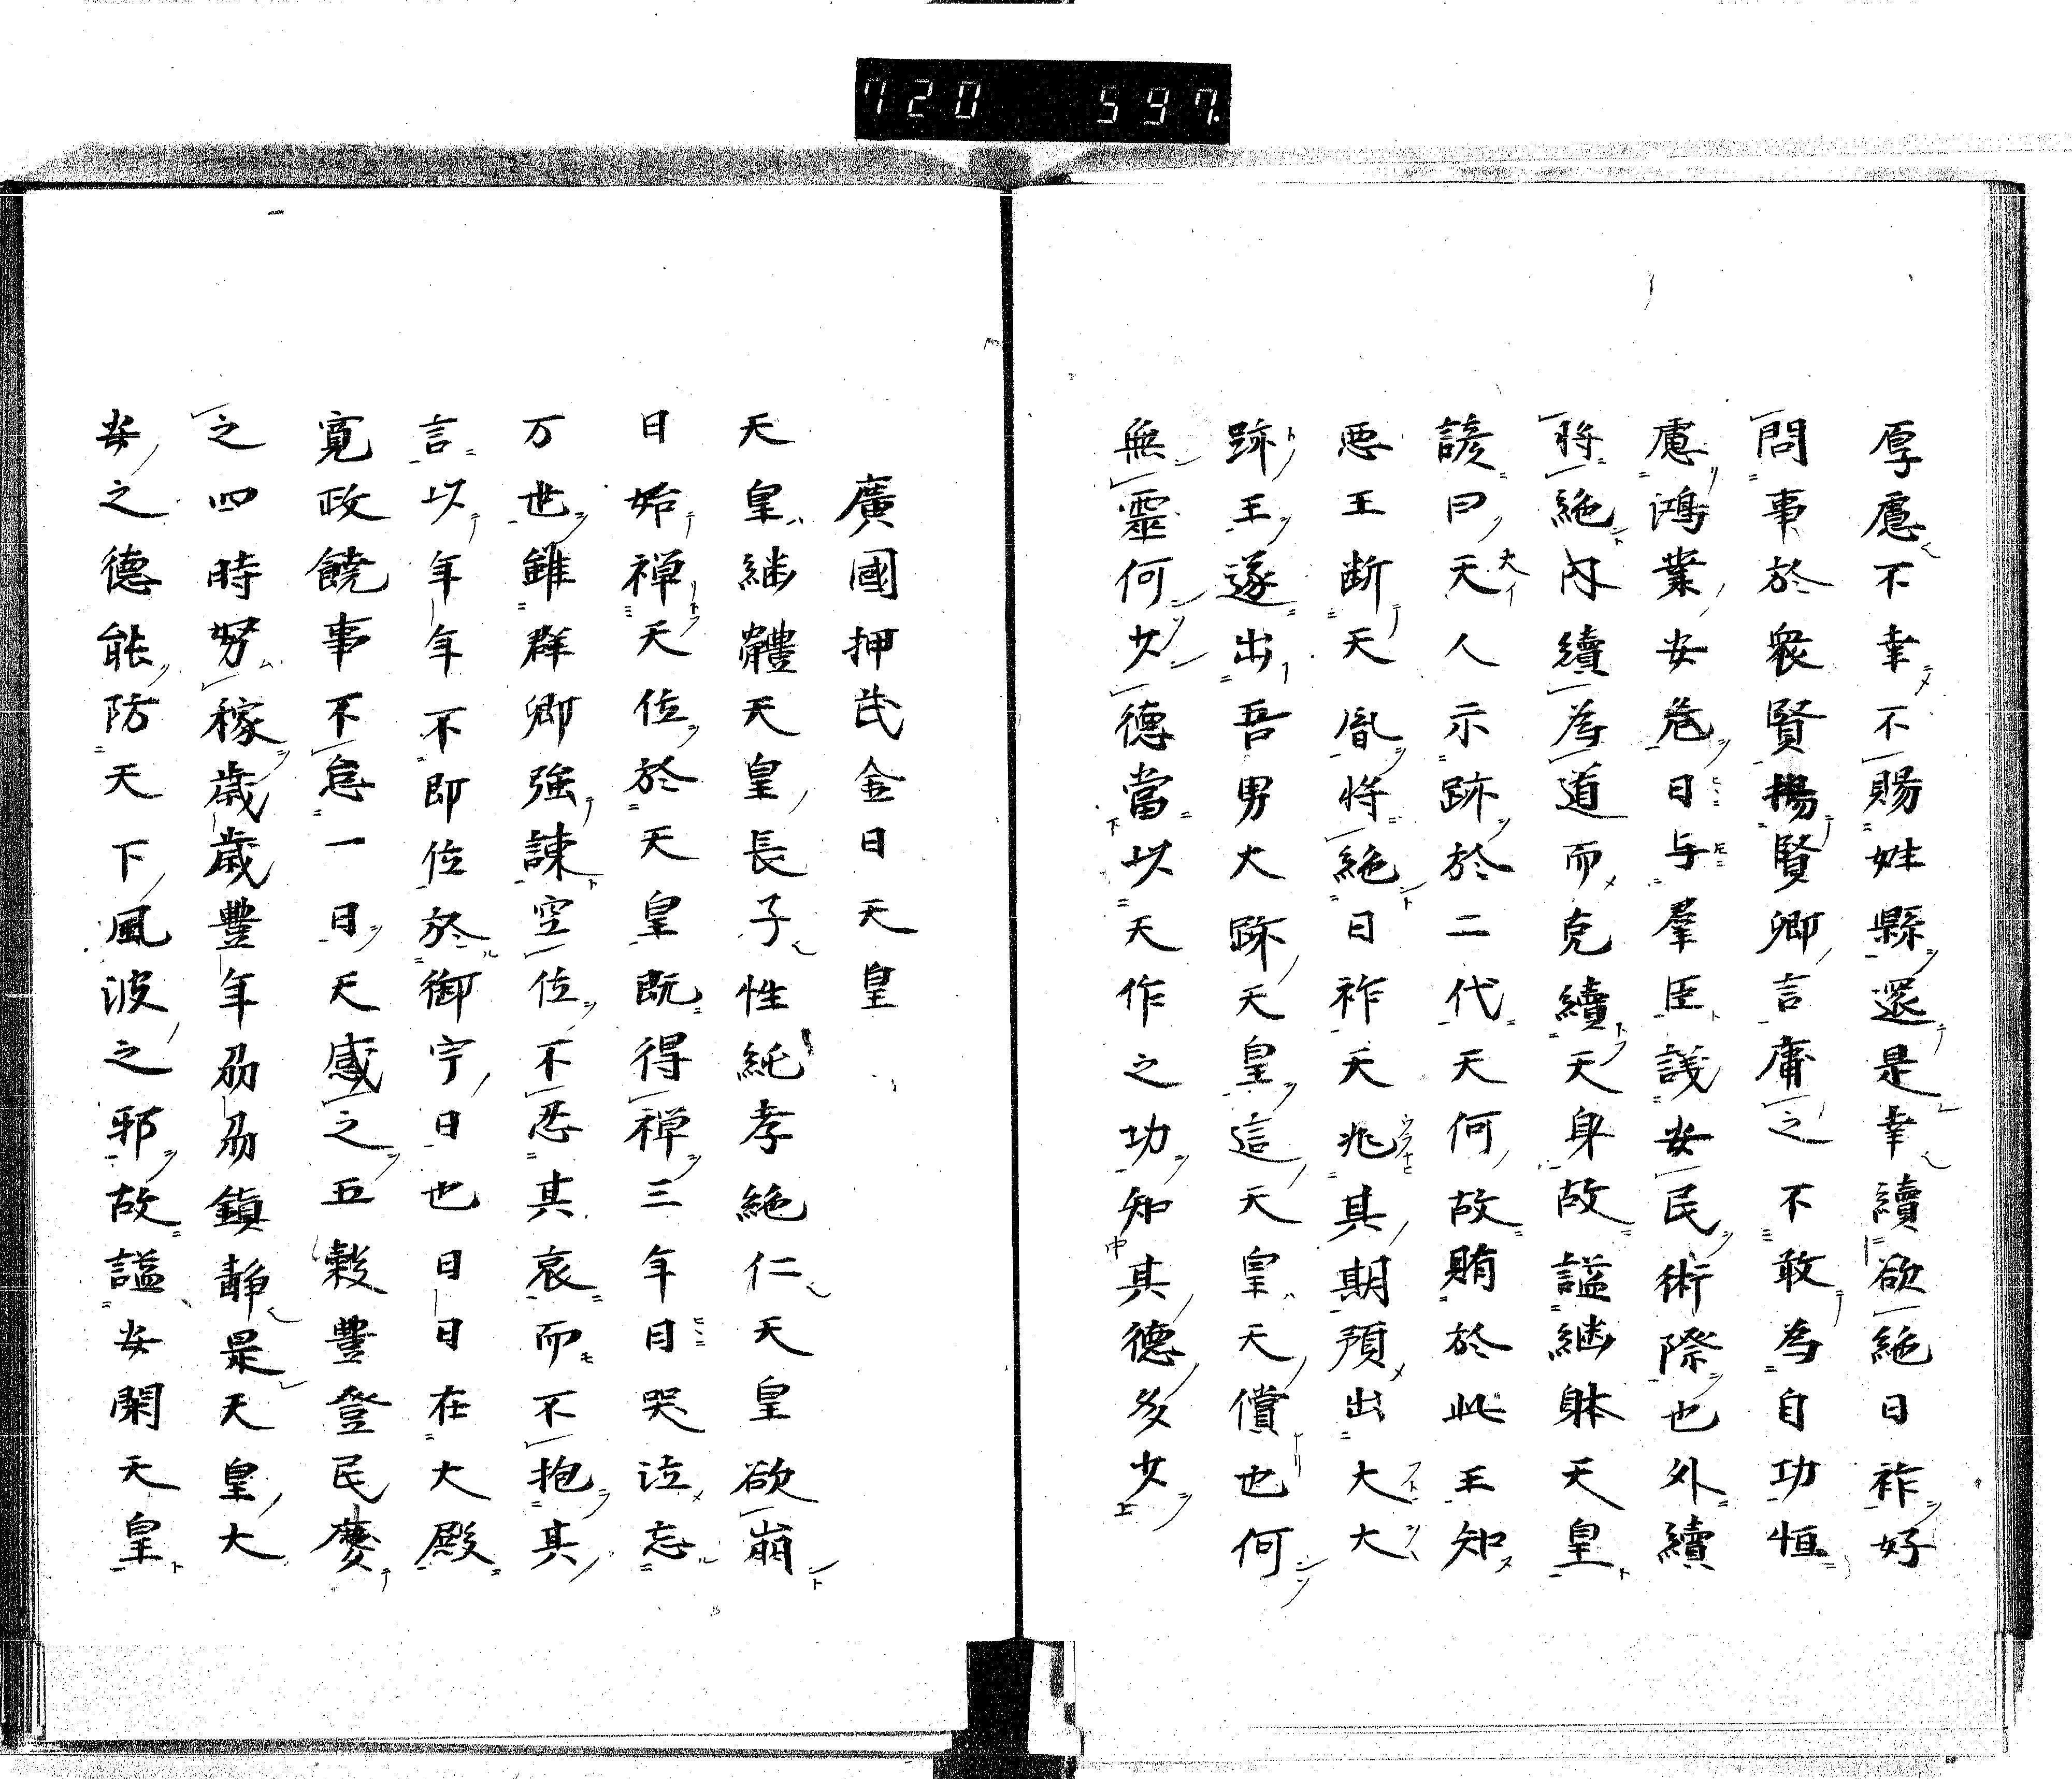 720 597.
厚慮不幸不賜姓縣還是幸續欲絶日祚好
問事於衆賢揚賢卿言庸之不敢為自功恒
慮鴻業安危日与羣臣議安民術際也外續
將絶内續為道而克續天身故謚継躰天皇
諺曰天人示跡於二代天何故賄於此王知
悪王断天胤将絶日祚天兆其期預出大大
跡王遂出吾男大跡天皇這天皇天償也何
無霊何少德當以天作之功知其德多少
廣國押武金日天皇
天皇継體天皇長子性純孝絶仁天皇欲崩
日始禅天位於天皇既得禅三年日哭泣忘
万世雖群卿強諌空位不忍其哀而不抱其
言以年年不即位於御宁日也日日在大殿
寛政饒事不怠一日天感之五穀豊登民慶
之四時努稼歳歳豊年刕刕鎮静是天皇大
安之德能防天下風波之邪故謚安閑天皇